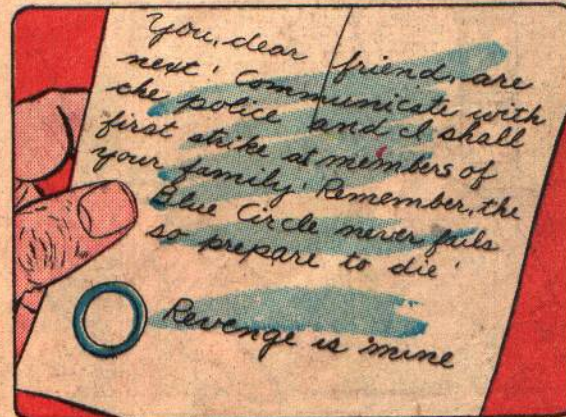 You, dear friend, are
next! Communicate with
the police and I shall
first strike at members of
your family! Remember, the
Blue Circle never fails
so prepare to die!
Revenge is mine